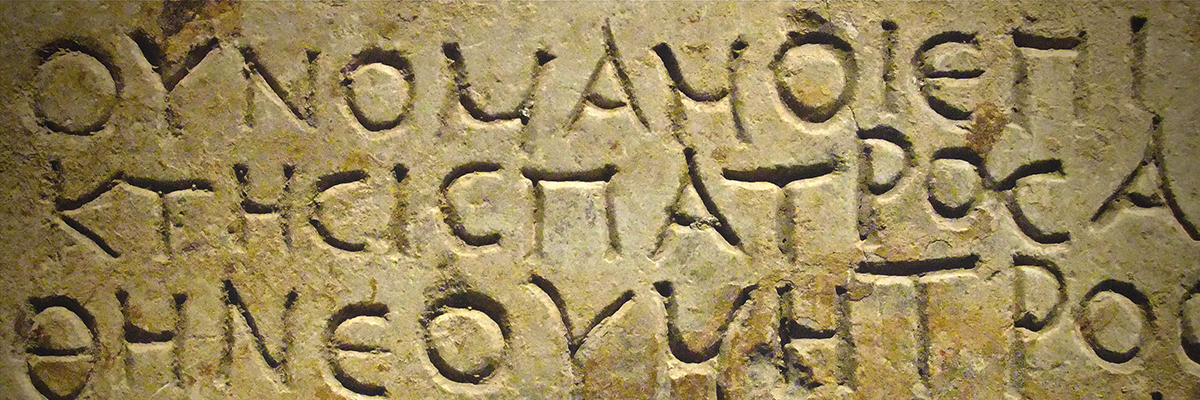 ΟΥΝΟΜΑΜΟΙΕΠΙ
ΚΤΗϹΙϹΠΑΤΡΟϹΑ
ΘΗΝΕΟΥΜΗΤΡΟϹ